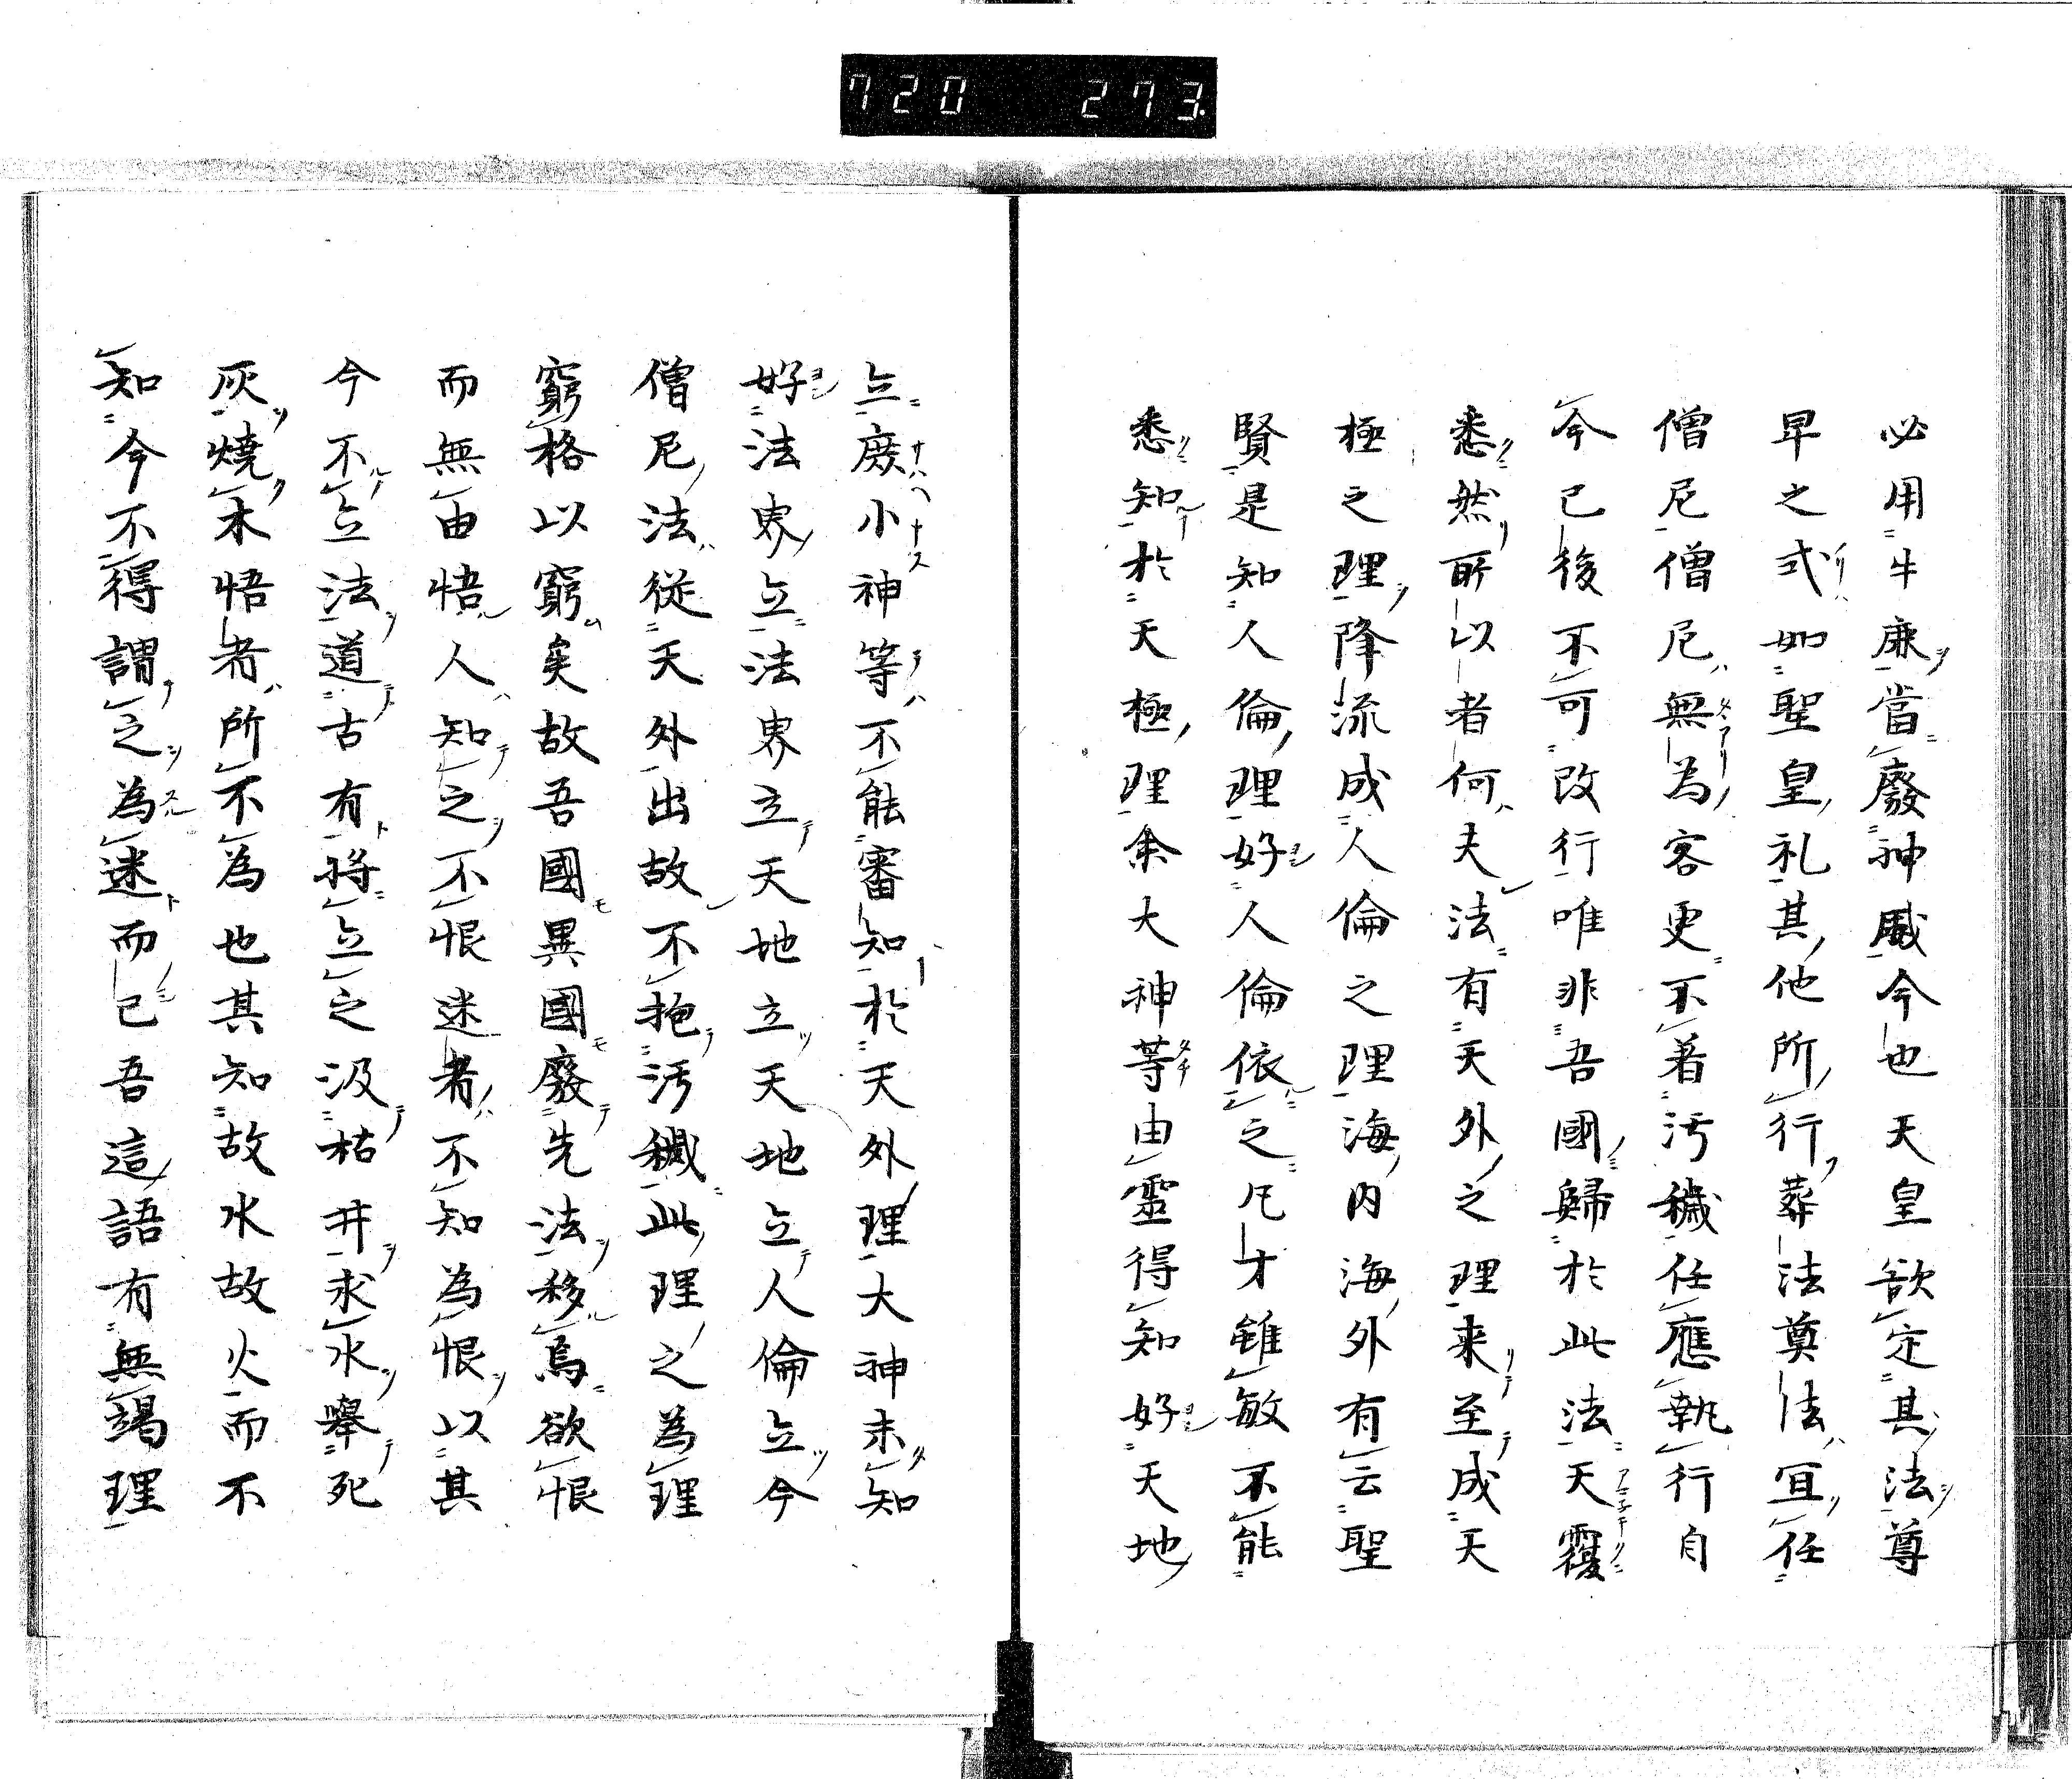 720 273
必用牛廉當廢神威今也天皇欲定其法尊
早之式如聖皇礼其他所行葬法奠法宜任
僧尼僧尼無為客更不着汚穢任應執行自
今已後不可改行唯非吾國歸於此法天覆
悉然所以者何夫法有天外之理来至成天
極之理降流成人倫之理海内海外有云聖
賢是知人倫理好人倫依之凡才雖敏不能
悉知於天極理余大神等由靈得知好天地
立庶小神等不能審知於天外理大神未知
好法界立法界立天地立天地立人倫立今
僧尼法從天外出故不抱汚穢此理之為理
窮格以窮矣故吾國異國廢先法移烏欲恨
而無由悟人知之不恨迷者不知為恨以其
今不立法道古有將立之汲枯井求水舉死
灰燒木悟者所不為也其知故水故火而不
知今不得謂之為迷而已吾這語有無竭理